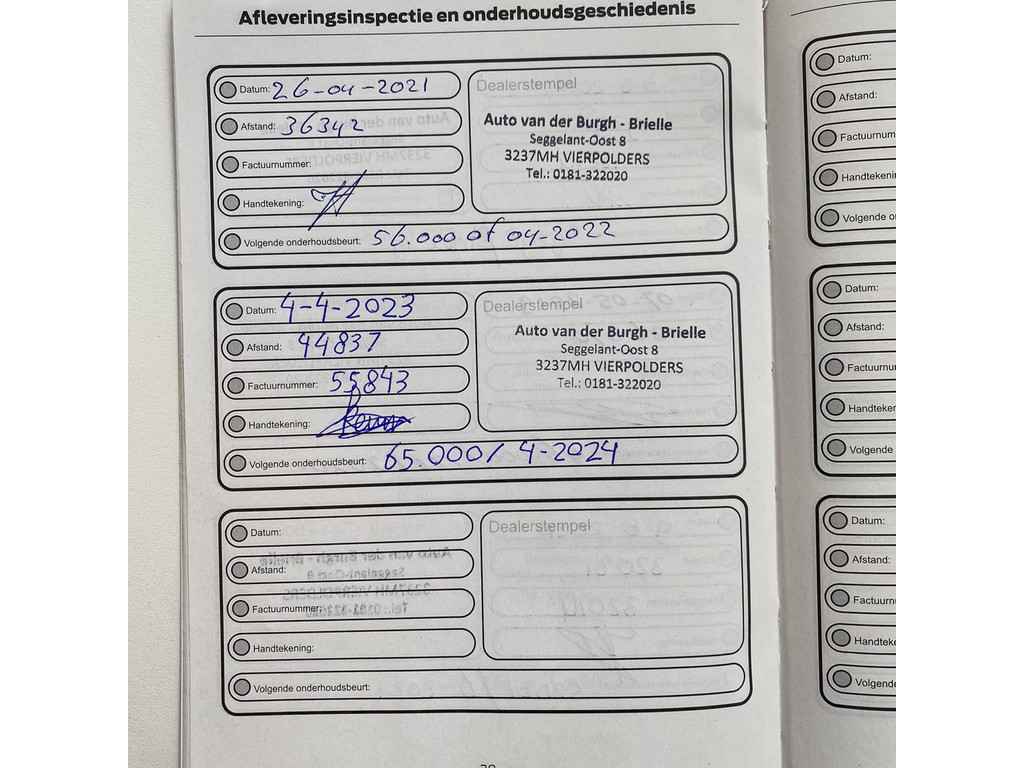 Afleveringsinspectie en onderhoudsgeschiedenis
Datum: 26-04-2021
Afstand: 36342
Factuurnummer:
Handtekening:
Volgende onderhoudsbeurt: 56.000 of 04-2022
Dealerstempel
Auto van der Burgh - Brielle
Seggelant-Oost 8
3237MH VIERPOLDERS
Tel.: 0181-322020
Datum: 4-4-2023
Afstand: 44837
Factuurnummer: 55843
Handtekening:
Volgende onderhoudsbeurt: 65.000/ 4-2024
Dealerstempel
Auto van der Burgh - Brielle
Seggelant-Oost 8
3237MH VIERPOLDERS
Tel.: 0181-322020
Datum:
Afstand:
Factuurnummer:
Handtekening:
Volgende onderhoudsbeurt:
Dealerstempel
Datum:
Afstand:
Factuurnum
Handtekeni
Volgende o
Datum:
Afstand:
Factuurnu
Handteker
Volgende
Datum:
Afstand:
Factuurn
Handteke
Volgende